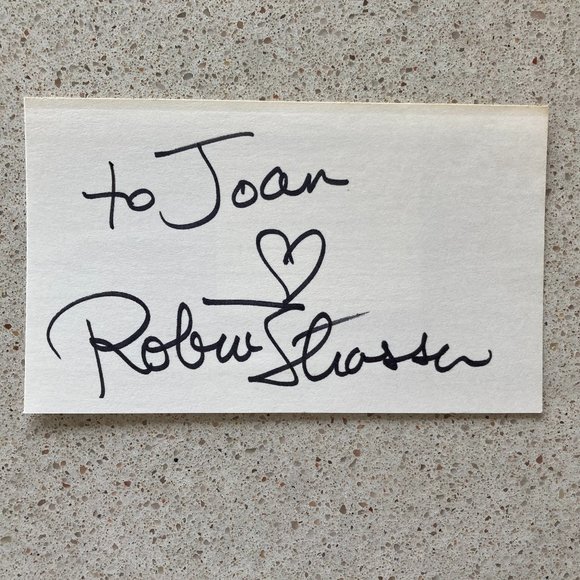 to Joan
♡
Robin Strasser